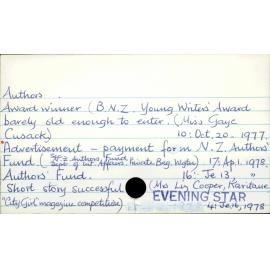 Authors.
Award winner (B.N.Z. Young Writers' Award
barely old enough to enter. (Miss Gaye
Cusack) 10: Oct. 20. 1977.
Advertisement - payment form N.Z. Authors'
Fund ( N.Z. Authors' Fund, Dept of Int. Affairs, Private Bag, Wgtn) 17: Apl. 1978.
Authors' Fund. 16: Je 13, "
Short story successful (Mrs Lin Cooper, Karitane
"City Girl" magazine competition) EVENING STAR
4: Je 16, 1978